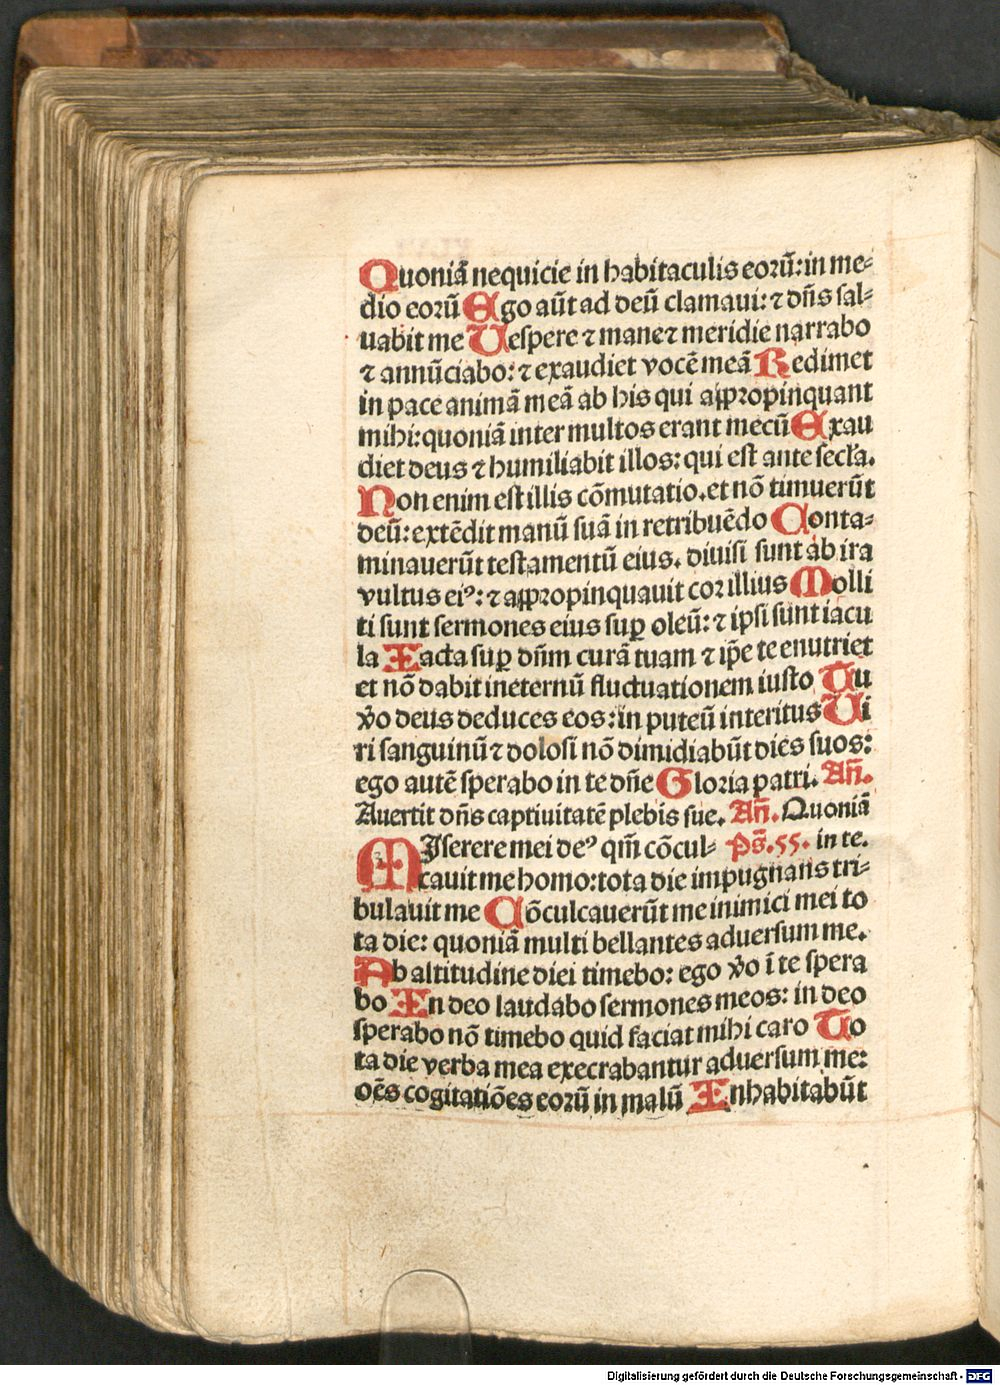 Quoniā nequicie in habitaculis eoꝝū: in me⸗
dio eorū Ego aūt ad deū clamaui: ⁊ dn̄s sal⸗
uabit me Uespere ⁊ mane ⁊ meridie narrabo
⁊ annūciabo: ⁊ exaudiet vocē meā Redimet
in pace animā meā ab his qui appropinquant
mihi: quoniā inter multos erant mecū Exau
diet deus ⁊ humiliabit illos: qui est ante secła.
Non enim est illis cōmutatio. et nō timuerūt
deū: extēdit manū suā in retribuēdo Conta⸗
minauerūt testamentū eius. diuisi sunt ab ira
vultus eiꝰ: ⁊ appropinquauit cor illius Molli
ti sunt sermones eius suꝑ oleū: ⁊ ipsi sunt iacu
la Iacta suꝑ dn̄m curā tuam ⁊ ip̄e te enutriet
et nō dabit in eternū fluctuationem iusto Tu
v̄o deus deduces eos: in puteū interitus Ui
ri sanguinū ⁊ dolosi nō dimidiabūt dies suos:
ego autē sperabo in te dn̄e Gloria patri. Añ.
Auertit dn̄s captiuitatē plebis sue. Añ. Quoniā
MIserere mei deꝰ qm̄ cōcul⸗ Ps̄. 55. in te.
cauit me homo: tota die impugnans tri⸗
bulauit me Cōculcauerūt me inimici mei to
ta die: quoniā multi bellantes aduersum me.
Ab altitudine diei timebo: ego v̄o ī te spera
bo In deo laudabo sermones meos: in deo
sperabo nō timebo quid faciat mihi caro To
ta die verba mea execrabantur aduersum me:
oēs cogitatiōes eorū in malū Inhabitabūt
Digitalisierung gefördert durch die Deutsche Forschungsgemeinschaft - DFG